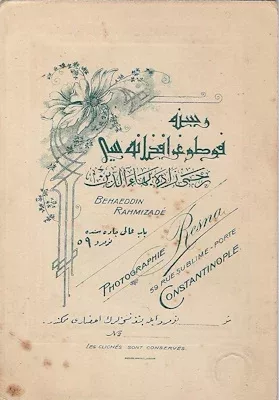 رسنه
فوطوغرافخانه سی
رحمی زاده بهاءالدین
BEHAEDDIN
RAHMIZADÈ
باب عالی جاده سنده
نومرو ٥٩
PHOTOGRAPHIE Resna
59 RUE SUBLIME-PORTE
CONSTANTINOPLE.
No
LES CLICHÉS SONT CONSERVÉS.